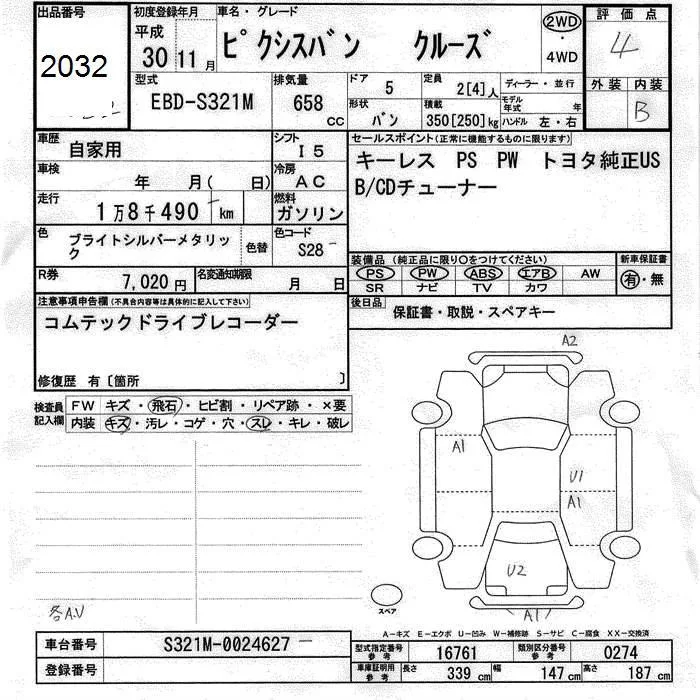 出品番号
2032
初度登録年月
平成
30 11 月
車名・グレード
ピクシスバン クルーズ
2WD
・
4WD
評価点
4
外装 内装
B
型式
EBD-S321M
排気量
658 cc
ドア 5
形状 バン
定員 2[4]人
積載 350[250]kg
ディーラー・並行
モデル年式 年
ハンドル 左・右
車歴 自家用
シフト I 5
車検 年 月( 日)
冷房 A C
走行 1万8千490 km
燃料 ガソリン
色 ブライトシルバーメタリック
色替
色コード S28
R券 7,020 円
名変通知期限 月 日
セールスポイント(正常に機能するものに限ります)
キーレス PS PW トヨタ純正US
B/CDチューナー
装備品 (純正品に限り○をつけてください)
PS PW ABS エアB AW
SR ナビ TV カワ
新車保証書
有・無
後日品 保証書・取説・スペアキー
注意事項申告欄(不具合内容等は具体的に記入して下さい)
コムテックドライブレコーダー
修復歴 有〔箇所 〕
検査員記入欄
FW キズ・飛石・ヒビ割・リペア跡・×要
内装 キズ・汚レ・コゲ・穴・スレ・キレ・破レ
A2
A1
U1
A1
U2
A1
各A.U
スペア
A-キズ E-エクボ U-凹み W-補修跡 S-サビ C-腐食 XX-交換済
車台番号 S321M-0024627
登録番号
型式指定番号 参考 16761
類別区分番号 参考 0274
車庫証明用 参考 長さ 339 cm 幅 147 cm 高さ 187 cm